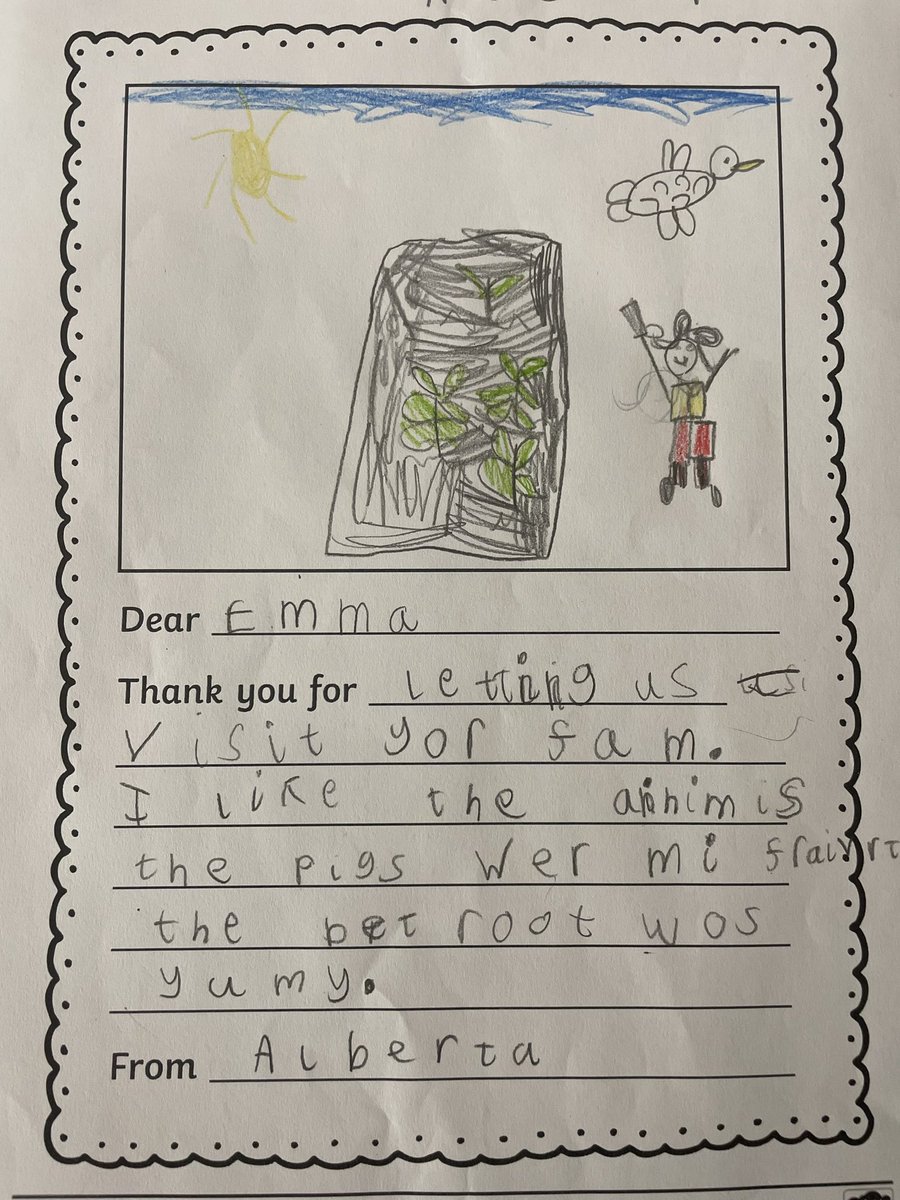 Dear Emma
Thank you for letting us
Visit yor fam.
I like the annimis
the pigs wer mi fraivrt
the betroot wos
yumy.
From Alberta